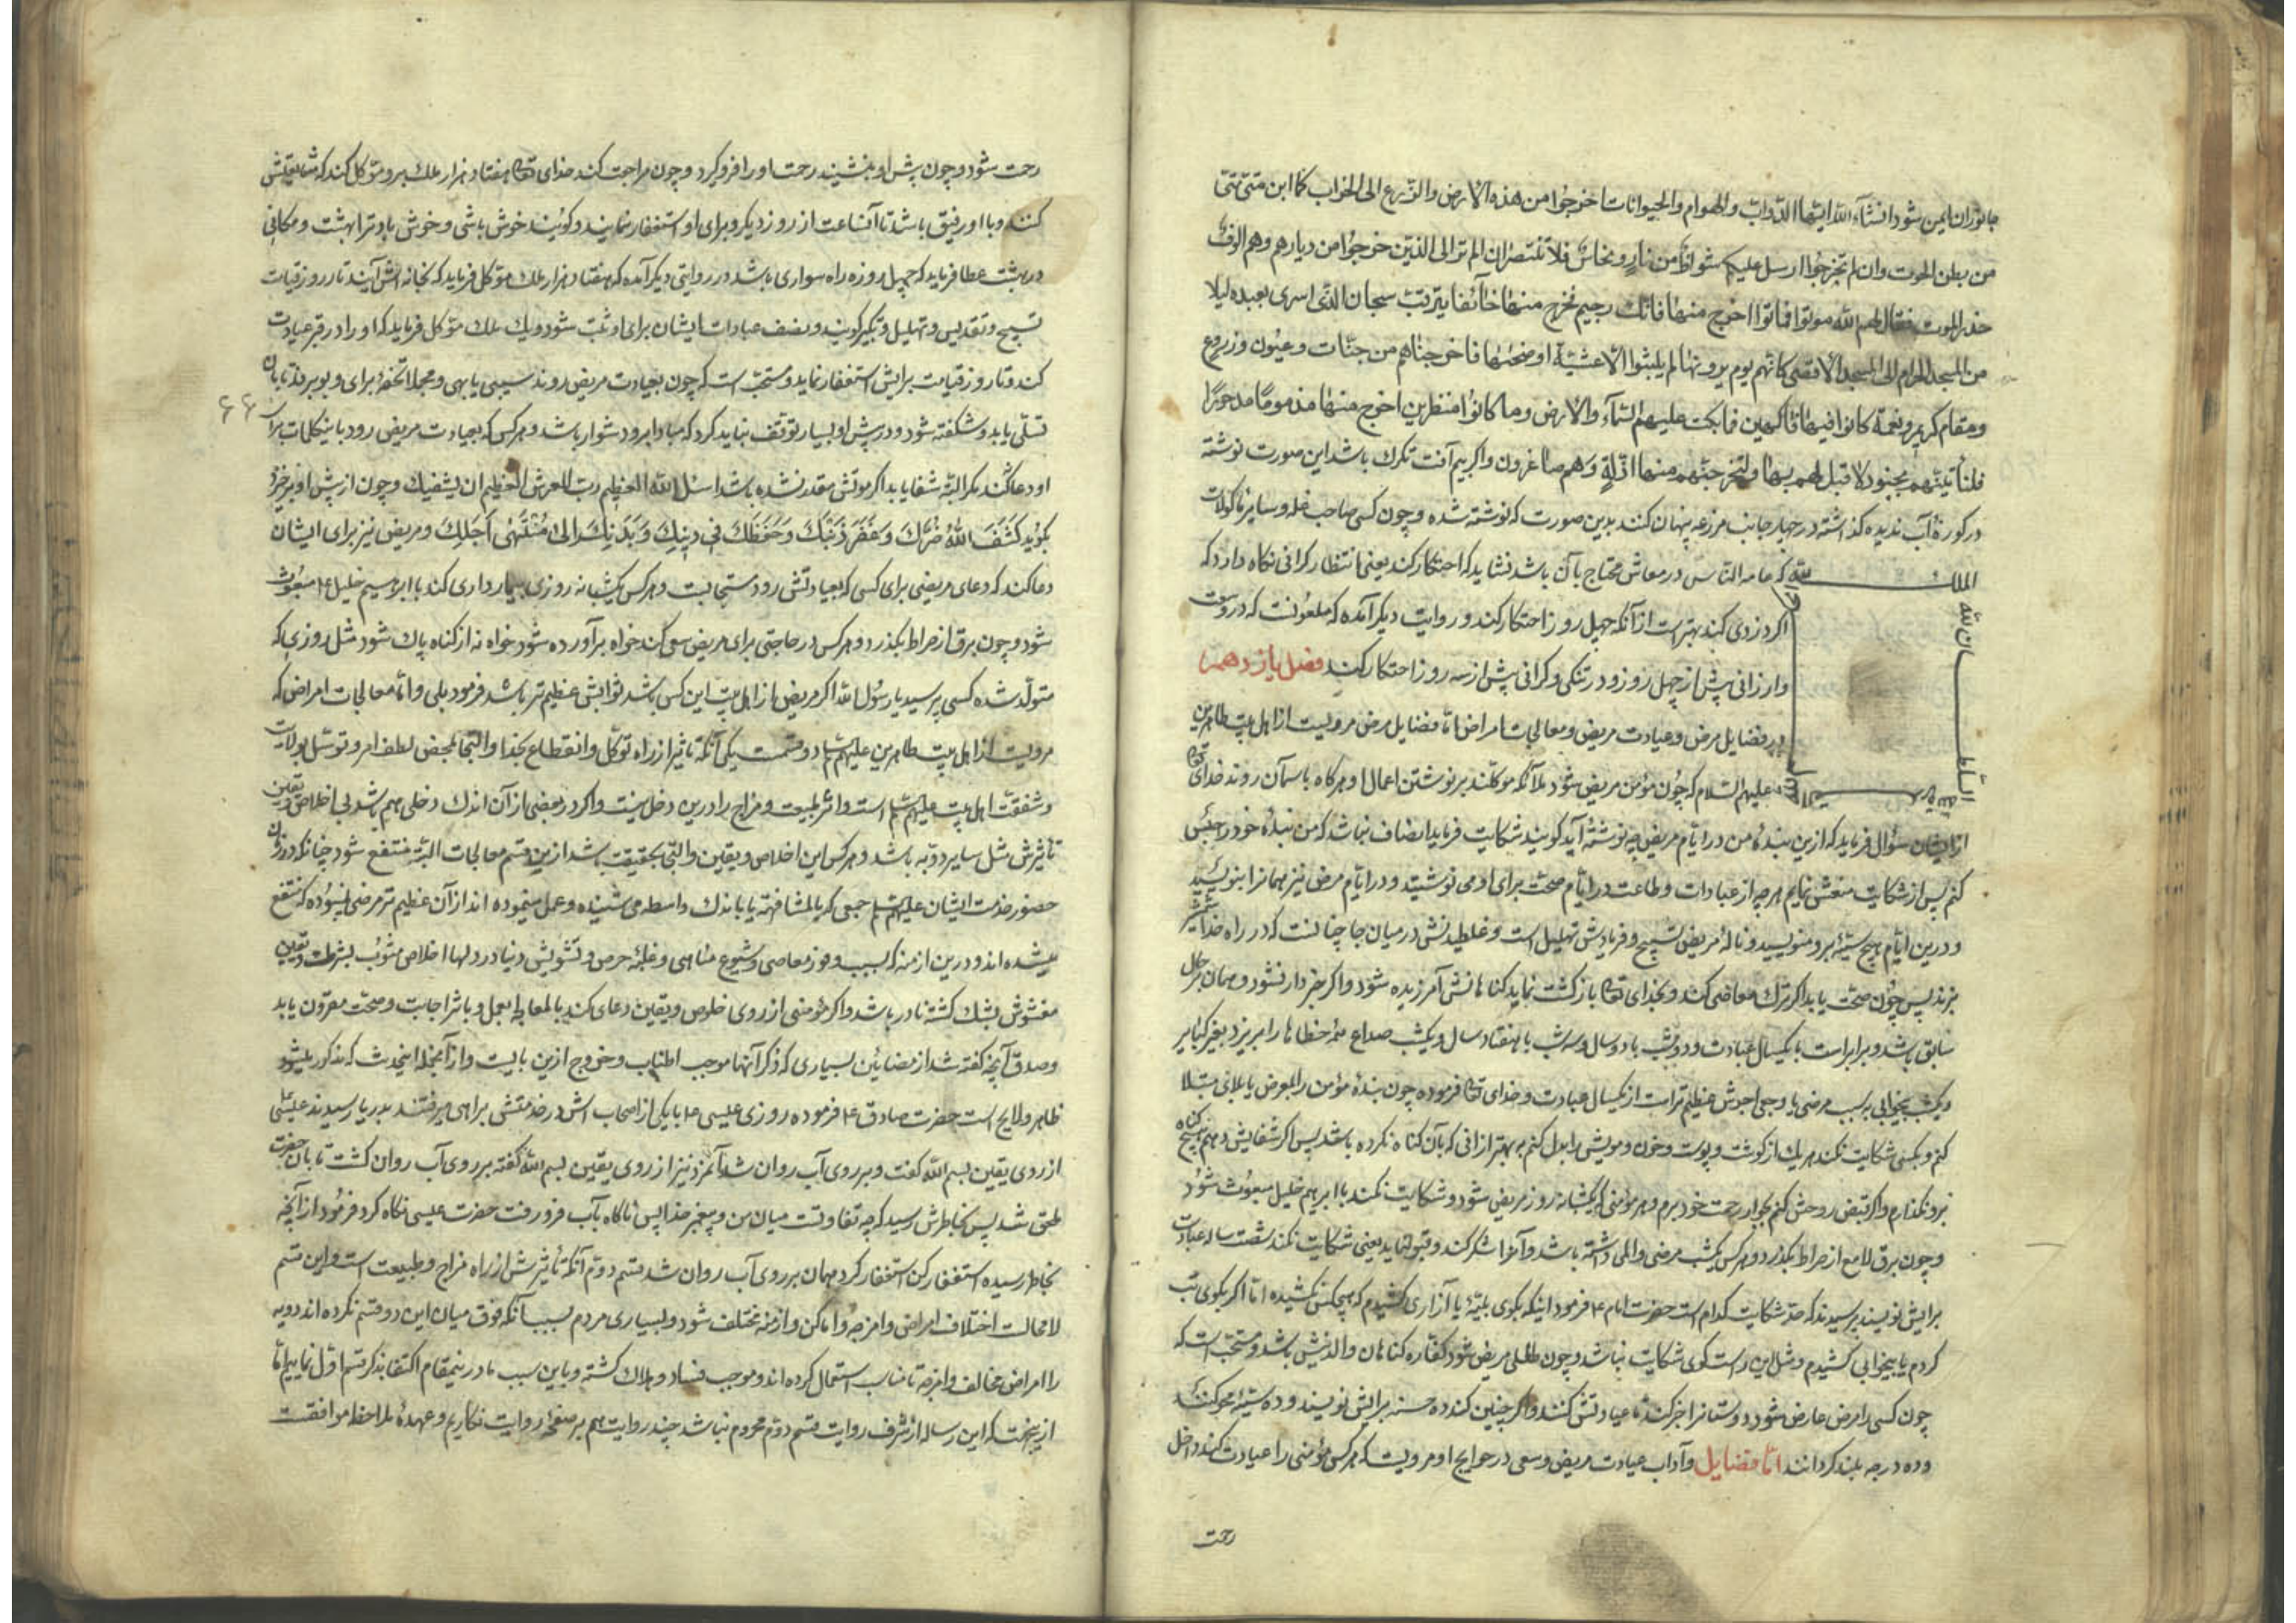 جانوران ایمن شود انشآء الله ایتها الدواب والهوام والحیوانات اخرجوا من هذه الارض والزرع الی الخراب کما ابن متی
من بطن الحوت وان لم تخرجوا ارسل علیکم شواظ من نار ونحاس فلا تنتصران الم تر الی الذین خرجوا من دیارهم وهم الوف
حذر الموت فقال لهم الله موتوا فماتوا اخرج منها فانک رجیم فخرج منها خآئفا یترقب سبحان الذی اسری بعبده لیلا
من المسجد الحرام الی المسجد الاقصی کانهم یوم یرونها لم یلبثوا الا عشیة او ضحیها فاخرجناهم من جنات وعیون وزروع
ومقام کریم ونعمة کانوا فیها فاکهین فما بکت علیهم السمآء والارض وما کانوا منظرین اخرج منها مذموما مدحورا
فلنأتینهم بجنود لا قبل لهم بها ولنخرجنهم منها اذلة وهم صاغرون واکر بیم آفت تکرک باشد این صورت نوشته
در کوزۀ آب ندیده کذاشته در چهار جانب مزرعه پنهان کنند بدین صورت که نوشته شده وچون کسی صاحب غله وسایر ماکولات
الملک لله که عامه الناس در معاش محتاج بآن باشد نشاید که احتکار کند یعنی بانتظار کرانی نکاه دارد که
اکر دزدی کند بهتر است از آنکه چهل روز احتکار کند ودر روایت دیکر آمده که ملعونست که در وسعت
وارزانی پیش از چهل روز ودر تنکی وکرانی پیش از سه روز احتکار کند فصل یازدهم
در فضایل مرض وعیادت مریض ومعالجات امراض اما فضایل مرض مرویست از اهل بیت طاهرین
علیهم السلام که چون مؤمن مریض شود ملآئکه موکلند بر نوشتن اعمال او هرکاه باسمان روند خدای تعالی
از ایشان سؤال فرماید که ازین بندۀ من در ایام مریض چه نوشته آید کویند شکایت فرماید انصاف نباشد که من بندۀ خود را حبس
کنم پس از شکایت منعش نمایم هرچه از عبادات وطاعت در ایام صحت برای او می نوشتید ودر ایام مرض نیز همانرا بنویسید
ودرین ایام هیچ سیئه برو منویسید ونالۀ مریض تسبیح وفریادش تهلیل است وغلطیدنش در میان جا چنانست که در راه خدا شمشیر
بزند پس چون صحت یابد اکر ترک معاصی کند وبخدای تعالی بازکشت نماید کناهانش آمرزیده شود واکر خبردار نشود وهمان بر حال
سابق باشد وبرابر است با یکسال عبادت ودو شب با دو سال وسه شب با هفتاد سال ویکشب صداع همۀ خطاها را بریزد بغیر کبایر
ویکشب بیخوابی بسبب مرضی یا وجعی اجرش عظیم تر است از یکسال عبادت وخدای تعالی فرموده چون بندۀ مؤمن را بمرض یا بلائی مبتلا
کنم وبکسی شکایت نکند هر یک از کوشت وپوست وخون ومویش را بدل کنم به بهتر از آنی که بآن کناه نکرده باشد پس اکر شفایش دهم هیچ کناه
برو نکذارم واکر قبض روحش کنم بجوار رحمت خود برم وهر مؤمنی که یکشبانه روز مریض شود وشکایت نکند با ابرهیم خلیل مبعوث شود
وچون برق لامع از صراط بکذرد وهرکس یکشب مرضی والمی داشته باشد وآنرا شکر کند وقبول نماید یعنی شکایت نکند شصت ساله عبادت
برایش نویسند پرسیدند که حد شکایت کدام است حضرت امام ع فرمود اینکه بکوی بلیۀ یا آزاری کشیدم که هیچکس نکشیده اما اکر بکوی تب
کردم یا بیخوابی کشیدم ومثل این راست کوی شکایت نباشد وچون طفلی مریض شود کفاره کناهان والدینش باشد ومستحب است که
چون کسی را مرض عارض شود دوستانرا خبر کند تا عیادتش کنند واکر چنین کند ده حسنه برایش نویسند وده سیئه محو کنند
وده درجه بلند کردانند اما فضایل وآداب عیادت مریض وسعی در حوایج او مرویست که هرکس مؤمنی را عیادت کند داخل
رحمت
الملک لله
السلطان لله
رحمت شود وچون پیش او بنشیند رحمت او را فرو کیرد وچون مراجعت کند خدای تعالی هفتاد هزار ملک برو موکل کند که مشایعتش
کنند وبا او رفیق باشد تا آنساعت از روز دیکر وبرای او استغفار نمایند وکویند خوش باشی وخوش باد ترا بهشت ومکانی
در بهشت عطا فرماید که چهل روزه راه سواری باشد در روایتی دیکر آمده که هفتاد هزار ملک موکل فرماید که بخانه اش آیند تا روز قیامت
تسبیح وتقدیس وتهلیل وتکبیر کویند ونصف عبادات ایشان برای او ثبت شود ویک ملک موکل فرماید که او را در قبر عیادت
کند وتا روز قیامت برایش استغفار نماید ومستحب است که چون بعیادت مریض روند سیبی یا بهی ومجملا تحفۀ برای وی برند تا بآن
تسلی یابد وشکفته شود ودر پیش او بسیار توقف نباید کرد که مبادا برو دشوار باشد وهرکس که بعیادت مریض رود باینکلمات برای
۶۶
او دعا کند مکر البته شفا یابد اکر موتش مقدر نشده باشد اسئل الله العظیم رب العرش العظیم ان یشفیک وچون از پیش او برخیزد
بکوید کشف الله ضرک وغفر ذنبک وحفظک فی دینک وبدنک الی منتهی اجلک ومریض نیز برای ایشان
دعا کند که دعای مریضی برای کسی که بعیادتش رود مستجابست وهرکس یکشبانه روزی بیمارداری کند با ابراهیم خلیل ع مبعوث
شود وچون برق از صراط بکذرد وهرکس در حاجتی برای مریض سعی کند خواه برآورده شود خواه نه از کناه پاک شود مثل روزی که
متولد شده کسی پرسید یا رسول الله اکر مریض از اهل بیت این کس باشد ثوابش عظیم تر باشد فرمود بلی واما معالجات امراض که
مرویست از اهل بیت طاهرین علیهم السلم دو قسمت یکی آنکه تاثیر از راه توکل وانقطاع بخدا والتجا بمحض لطف امر وتوسل بولایت
وشفقت اهل بیت علیهم السلم است واثر طبیعت ومزاج را درین دخل نیست واکر در بعضی از آن اندک دخلی هم باشد بی اخلاص ویقین
تأثیرش مثل سایر ادویه باشد وهرکس این اخلاص ویقین والتجا بحقیقت باشد ازین قسم معالجات البته منتفع شود چنانکه در زمان
حضور خدمت ایشان علیهم السلم جمعی که بالمشافهة یا باندک واسطه می شنیده وعمل مینموده اند از آن عظیم تر مرضی نبوده که منتفع
میشده اند ودرین ازمنه که بسبب وفور معاصی وشیوع مناهی وغلبۀ حرص وتشویش دنیا در دلها اخلاص مشوب بشرک ویقین
مغشوش بشک کشته نادر باشد واکر مؤمنی از روی خلوص ویقین دعای کند یا بمعالجه بعمل وباثر اجابت وصحت مقرون یابد
وصدق آنچه کفته شد از مضامین بسیاری که ذکر آنها موجب اطناب وخروج ازین بابست واز آنجمله اینحدیث که مذکور میشود
ظاهر ولایح است حضرت صادق ع فرموده روزی عیسی ع با یکی از اصحاب اش در خدمتش براهی میرفتند بدریا رسیدند عیسی
از روی یقین بسم الله کفت وبر روی آب روان شد آنمرد نیز از روی یقین بسم الله کفته بر روی آب روان کشت تا بآن حضرت
ملحق شد پس بخاطرش رسید که چه تفاوتست میان من وپیغمبر خدا پس ناکاه بآب فرو رفت حضرت عیسی نکاه کرد فرمود از آنچه
بخاطر رسیده استغفار کن استغفار کرد همان بر روی آب روان شد قسم دوم آنکه تأثیرش از راه مزاج وطبیعت است واین قسم
لا محالت اختلاف امراض وامزجه واماکن وازمنه مختلف شود وبسیاری مردم بسبب آنکه فرق میان این دو قسم نکرده اند ادویه
را امراض مخالف وامزجه نامناسب استعمال کرده اند وموجب فساد وهلاک کشته وباین سبب ما درینمقام اکتفا بذکر قسم اول نماییم اما
ازینجهت که این رساله از شرف روایت قسم دوم محروم نباشد چند روایت هم بر صفحۀ روایت نکاریم وعهدۀ ملاحظه موافقت